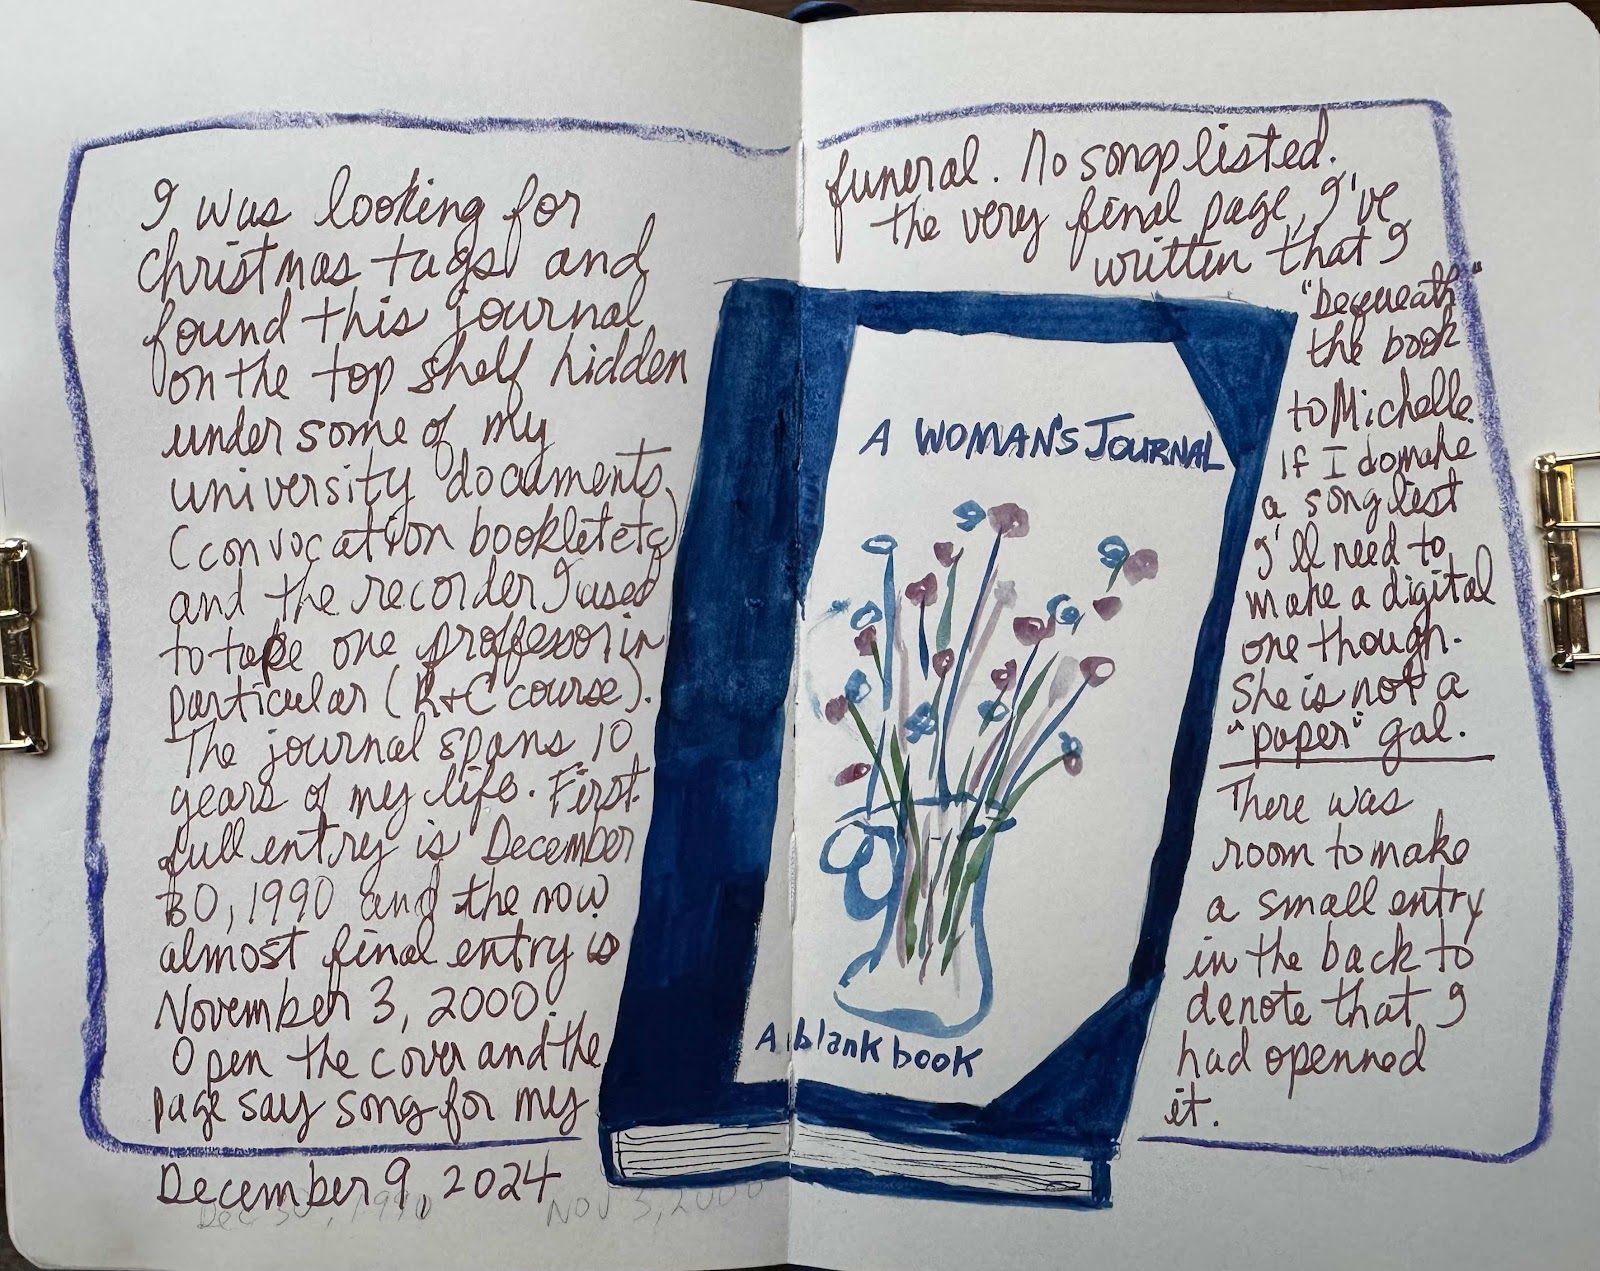 I was looking for
Christmas tags and
found this journal
on the top shelf hidden
under some of my
university documents
(convocation booklet etc)
and the recorder I used
to tape one proffessor in
particular (R+C course).
The journal spans 10
years of my life. First
full entry is December
30, 1990 and the now
almost final entry is
November 3, 2000.
Open the cover and the
page say song for my
December 9, 2024
Dec 30, 1990 Nov 3, 2000
funeral. No songs listed.
The very final page, I've
written that I
"bequeath"
the book
to Michelle.
If I do make
a song list
I'll need to
make a digital
one though.
She is not a
"paper" gal.
There was
room to make
a small entry
in the back to
denote that I
had openned
it.
A WOMAN'S JOURNAL
A blank book